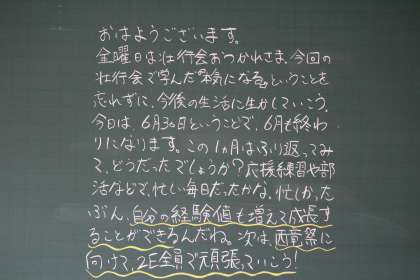 おはようございます。
金曜日は壮行会おつかれさま。今回の
壮行会で学んだ『本気になる』ということを
忘れずに、今後の生活に生かしていこう。
今日は、6月30日ということで、6月も終わ
りになります。この1ヵ月はふり返ってみ
て、どうだったでしょうか？応援練習や部
活などで、忙しい毎日だったかな。忙しかった
ぶん、自分の経験値も増えて成長す
ることができるんだね。次は、西竜祭に
向けて、2E全員で頑張っていこう！